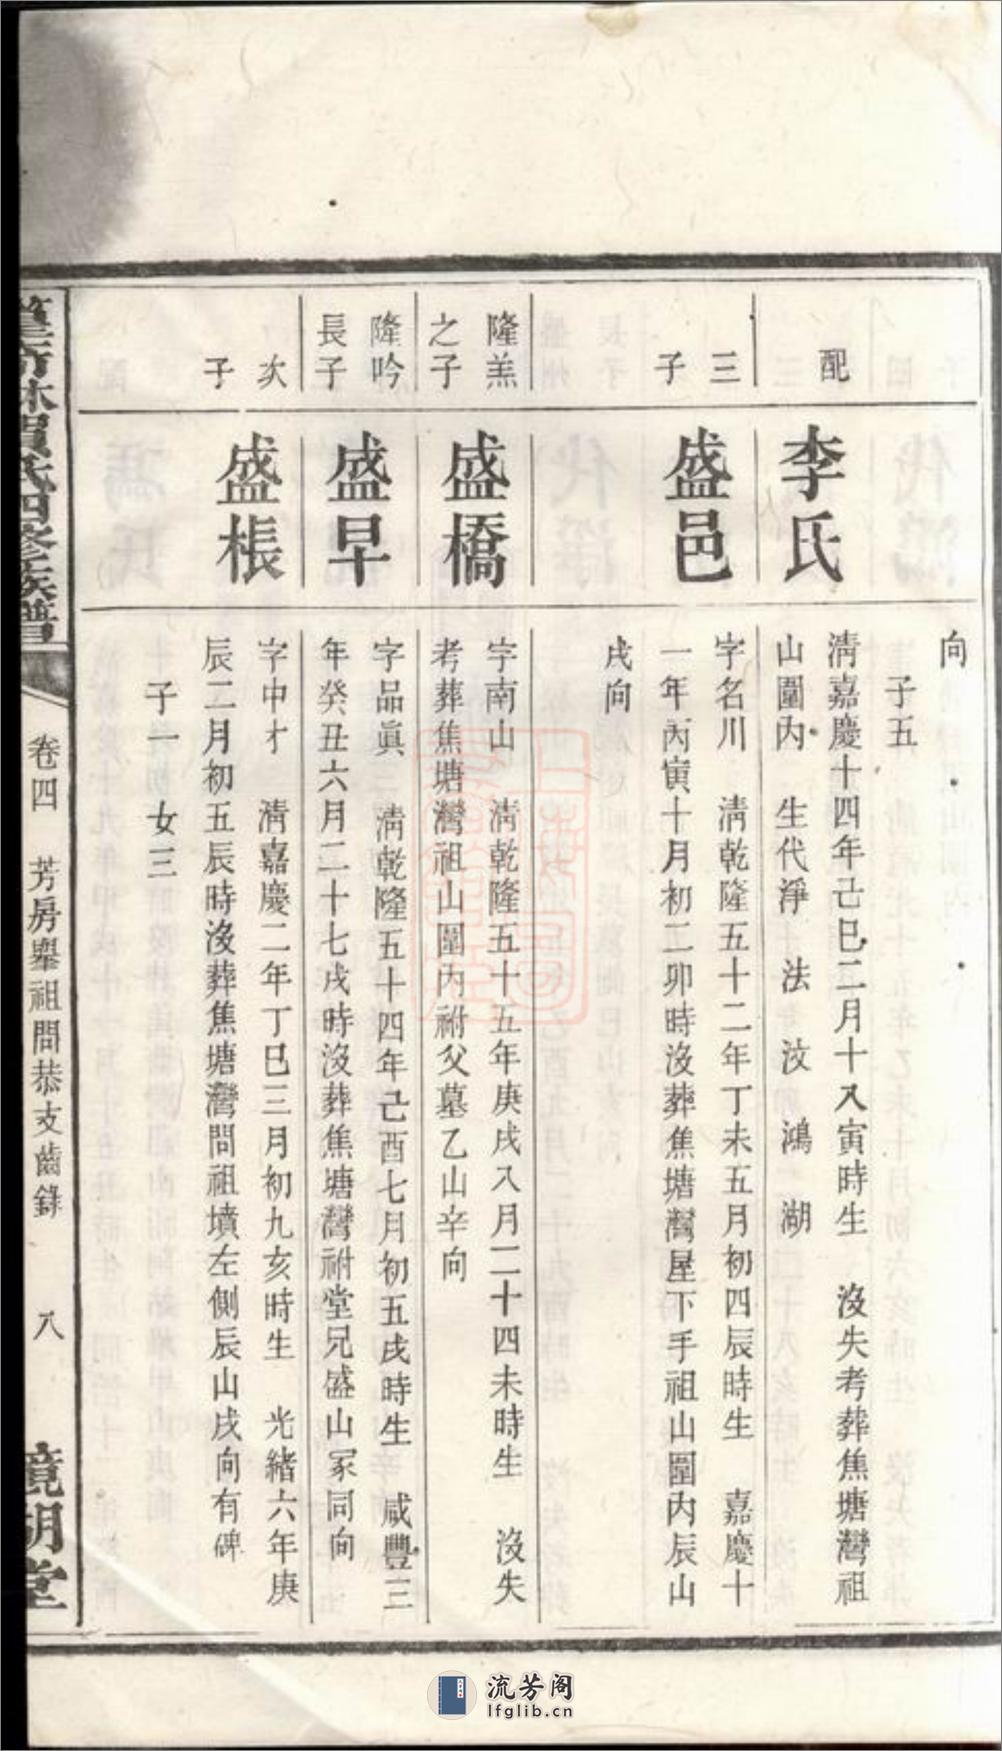 向
子五
配
李氏
清嘉慶十四年己巳二月十八寅時生　沒失考葬焦塘灣祖
山圍內　生代淨　法　汶　鴻　湖
三子
盛邑
字名川　清乾隆五十二年丁未五月初四辰時生　嘉慶十
一年丙寅十月初二卯時沒葬焦塘灣屋下手祖山圍內辰山
戌向
隆羔之子
盛橋
字南山　清乾隆五十五年庚戌八月二十四未時生　沒失
考葬焦塘灣祖山圍內祔父墓乙山辛向
隆吟長子
盛早
字品眞　清乾隆五十四年己酉七月初五戌時生　咸豐三
年癸丑六月二十七戌時沒葬焦塘灣祔堂兄盛山冢同向
次子
盛棖
字中才　清嘉慶二年丁巳三月初九亥時生　光緒六年庚
辰二月初五辰時沒葬焦塘灣問祖墳左側辰山戌向有碑
子一　女三
氏四修族譜
卷四　芳房舉祖問恭支齒錄　八
鏡湖堂
流芳阁
lfglib.cn